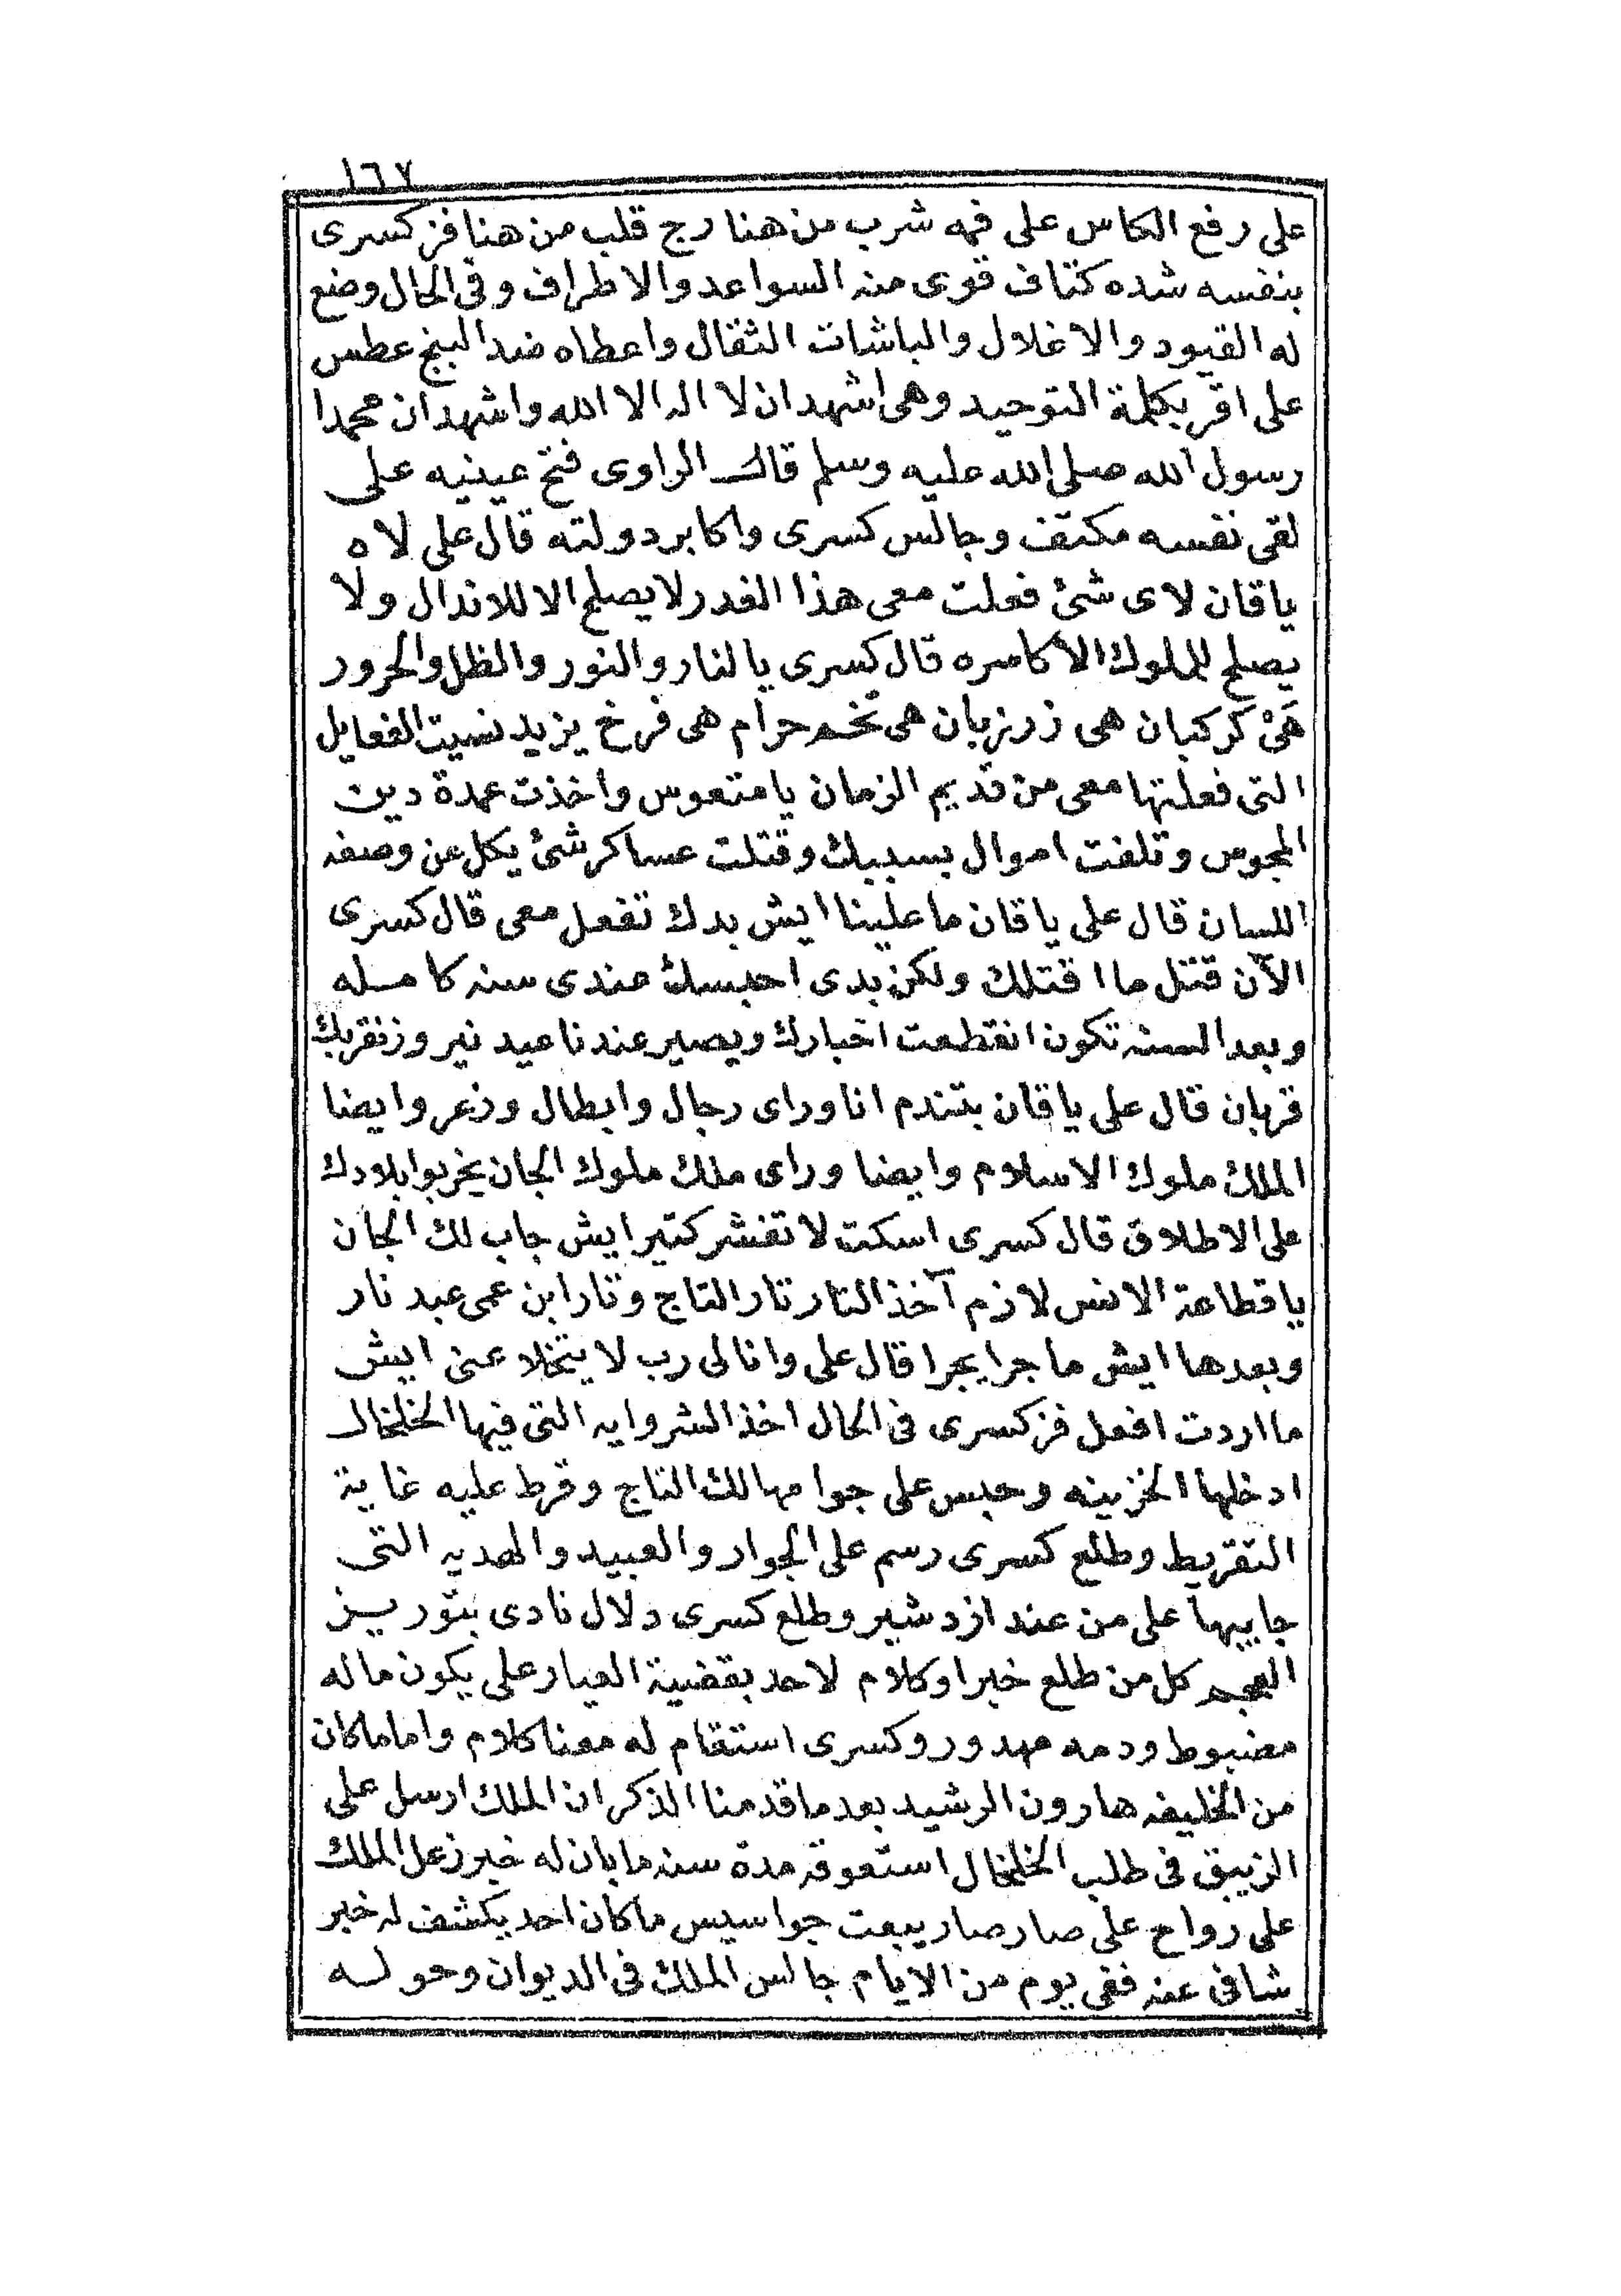 ١٦٧
على رفع الكاس على فمه شرب من هنا رج قلب من هنا فز كسرى
بنفسه شده كتاف قوى منه السواعد والاطراف وفى الحال وضع
له القيود والاغلال والباشات الثقال واعطاه ضد البنج عطس
على اقر بكلمة التوحيد وهى اشهد ان لا اله الا الله واشهد ان محمدا
رسول الله صلى الله عليه وسلم قال الراوى فتح عينيه على
لقى نفسه مكتف وجالس كسرى واكابر دولته قال على لاه
ياقان لاى شئ فعلت معى هذا الغدر لا يصلح الا للاندال ولا
يصلح للملوك الاكاسره قال كسرى يالنار والنور والظل والحرور
هَىْ كركبان هى زرزبان هى تخم حرام هى فرخ يزيد نسيت الفعايل
التى فعلتها معى من قديم الزمان يا متعوس واخذت عمدة دين
المجوس وتلفت اموال بسببك وقتلت عساكر شئ يكل عن وصفه
اللسان قال على ياقان ما علينا ايش بدك تفعل معى قال كسرى
الآن قتل ما اقتلك ولكن بدى احبسك عندى سنه كامله
وبعد السنه تكون انقطعت اخبارك ويصير عندنا عيد نيروز نقربك
قربان قال على ياقان بتندم انا وراى رجال وابطال وزعر وايضا
الملك ملوك الاسلام وايضا وراى ملك ملوك الجان يخربوا بلادك
على الاطلاق قال كسرى اسكت لا تفشر كتير ايش جاب لك الجان
يا قطاعة الانس لازم آخذ التار تار التاج وتار ابن عمى عبد نار
وبعدها ايش ما جرا يجرا قال على وانا لى رب لا يتخلا عنى ايش
ما اردت افعل فز كسرى فى الحال اخذ الشروايه التى فيها الخلخال
ادخلها الخزينه وحبس على جوا مهالك التاج وقرط عليه غاية
التقريط وطلع كسرى رسم على الجوار والعبيد والهديه التى
جاييها على من عند ازدشير وطلع كسرى دلال نادى بتوريز
العجم كل من طلع خبر او كلام لاحد بقضية العيار على يكون ماله
مضبوط ودمه مهدور وكسرى استقام له معنا كلام واما ماكان
من الخليفه هارون الرشيد بعد ما قدمنا الذكر ان الملك ارسل على
الزيبق فى طلب الخلخال استعوقه مدة سنه ما بان له خبر زعل الملك
على رواح على صار صار يبعت جواسيس ماكان احد يكشف له خبر
شافى عنه ففى يوم من الايام جالس الملك فى الديوان وحوله